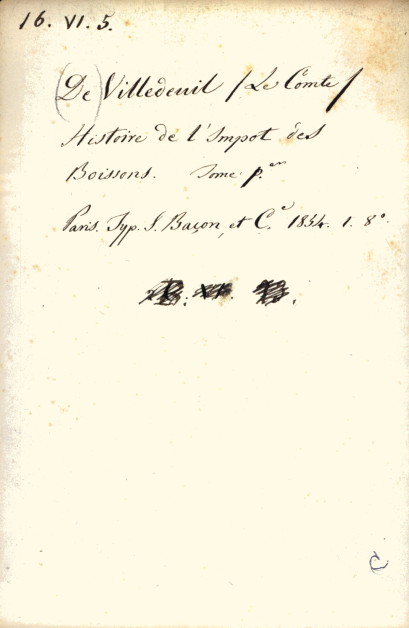 16. VI. 5.
(De) Villedeuil / Le Comte /
Histoire de l'Impot des
Boissons. Tome p.er
Paris. Typ. S. Baçon, et C.e 1854. 1. 8°.
C